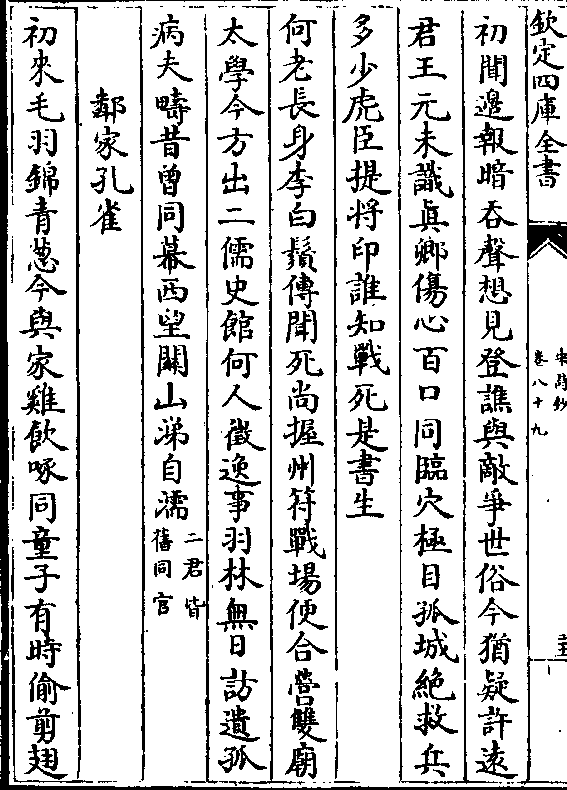 欽定四庫全書
宋詩鈔
卷八十九
初聞邊報暗吞聲想見登譙與敵爭世俗今猶疑許遠
君王元未識真卿傷心百口同臨穴極目孤城絶救兵
多少虎臣提將印誰知戰死是書生
何老長身李白鬚傳聞死尚握州符戰場便合營雙廟
太學今方出二儒史館何人徵逸事羽林無日訪遺孤
病夫疇昔曾同幕西望關山涕自濡二君皆
舊同官
鄰家孔雀
初來毛羽錦青葱今與家雞飲啄同童子有時偷剪翅